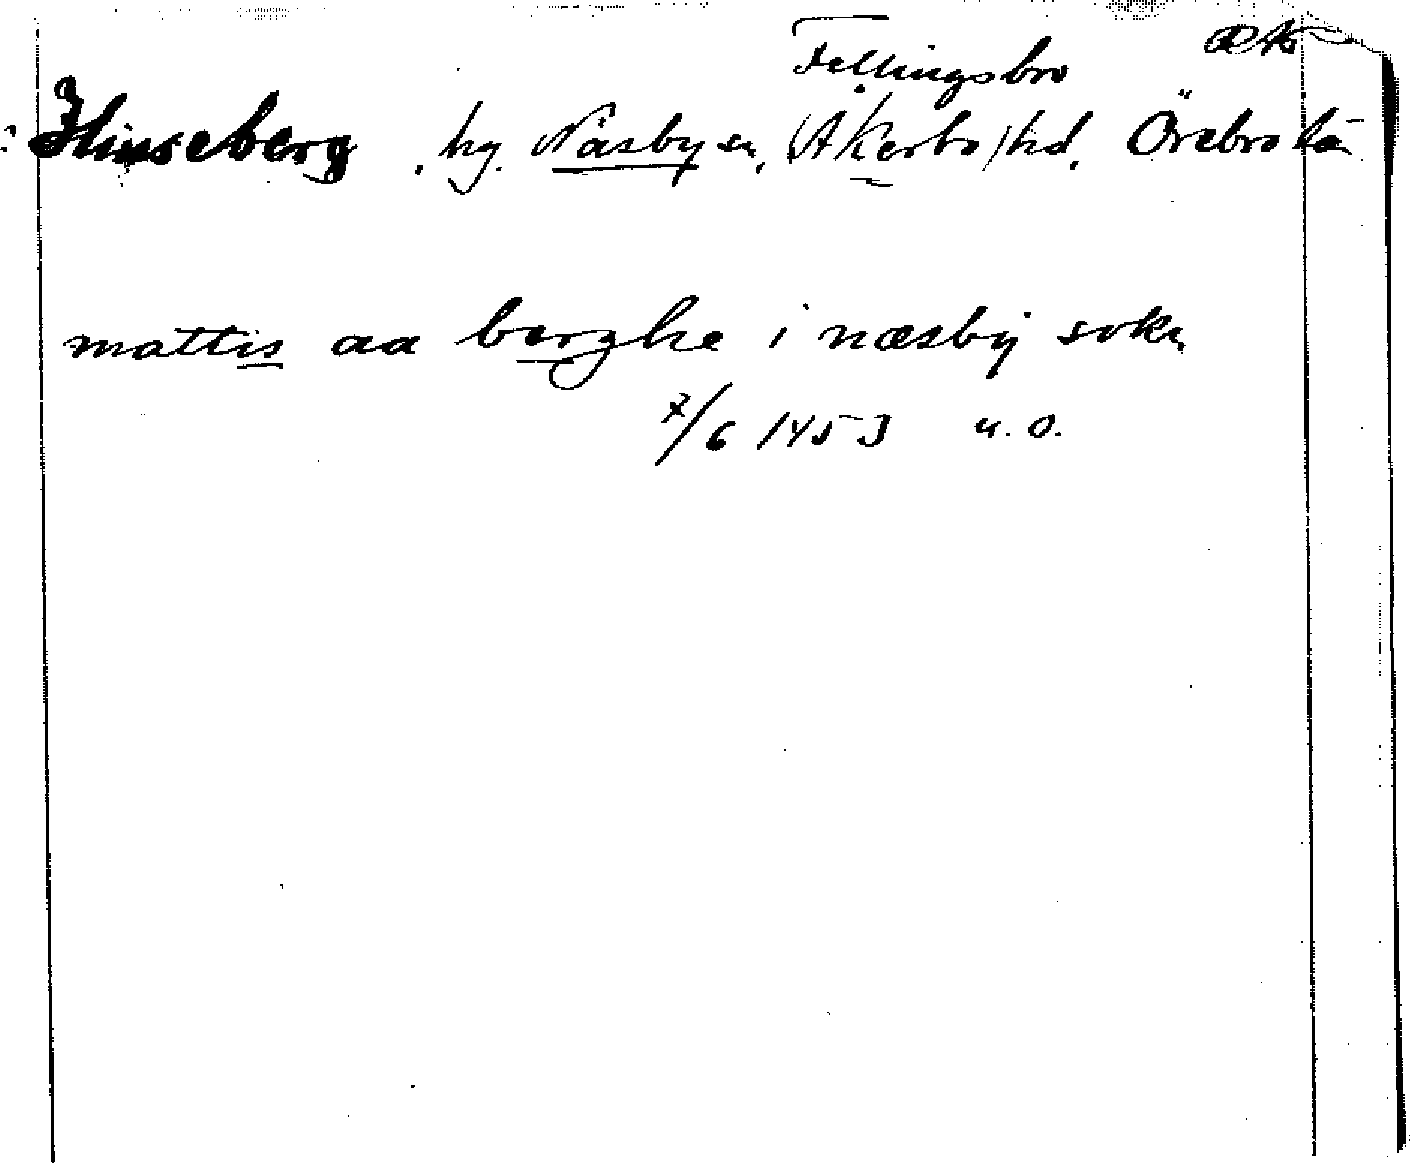 Fellingsbro
Hinseberg, hg. Näsby sn, (Åkerbo) hd, Örebro län
mattis aa berghe i næsbij sokn
7/6 1453 u. o.